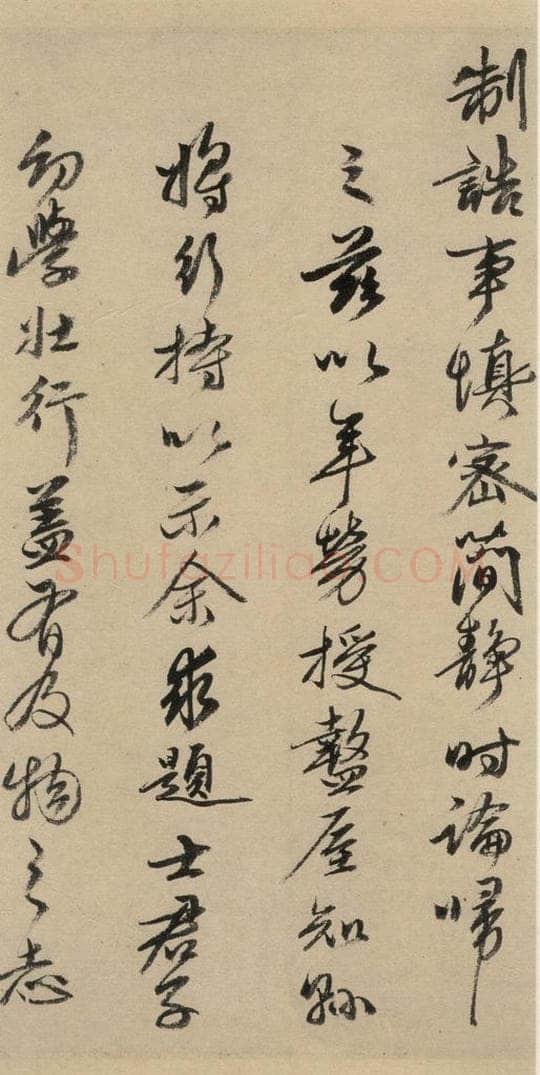 制誥事慎密簡靜时論歸
之茲以年勞授盩厔知縣
將行持以示余求題士君子
幼學壯行蓋有及物之志
Shufaziliao.COM